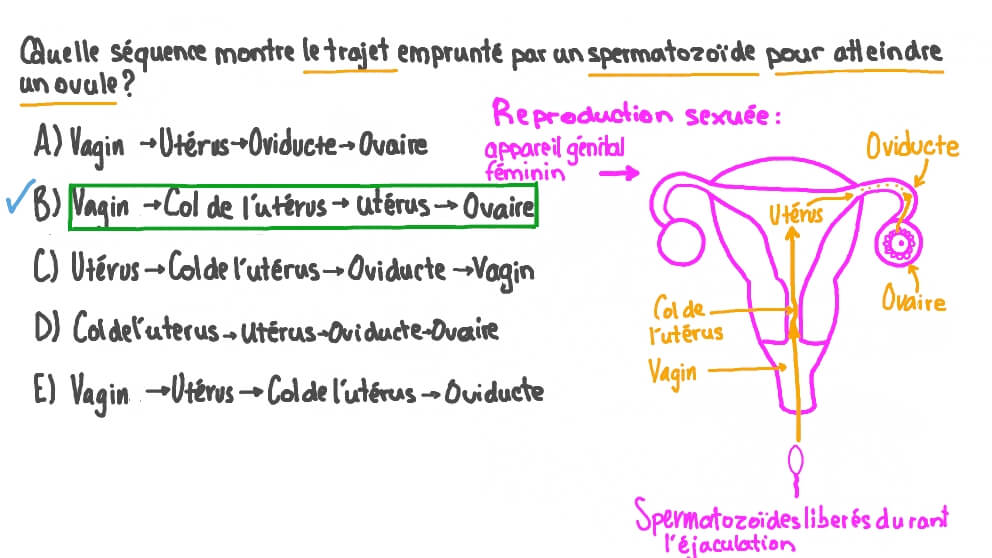 Quelle séquence montre le trajet emprunté par un spermatozoïde pour atteindre
un ovule?
A) Vagin → Utérus → Oviducte → Ovaire
B) Vagin → Col de l'utérus → utérus → Ovaire
C) Utérus → Col de l'utérus → Oviducte → Vagin
D) Col de l'uterus → Utérus → Oviducte → Ovaire
E) Vagin → Utérus → Col de l'utérus → Oviducte
Reproduction sexuée:
appareil génital
féminin →
Oviducte
Utérus
Ovaire
Col de
l'utérus
Vagin
Spermatozoïdes liberés durant
l'éjaculation